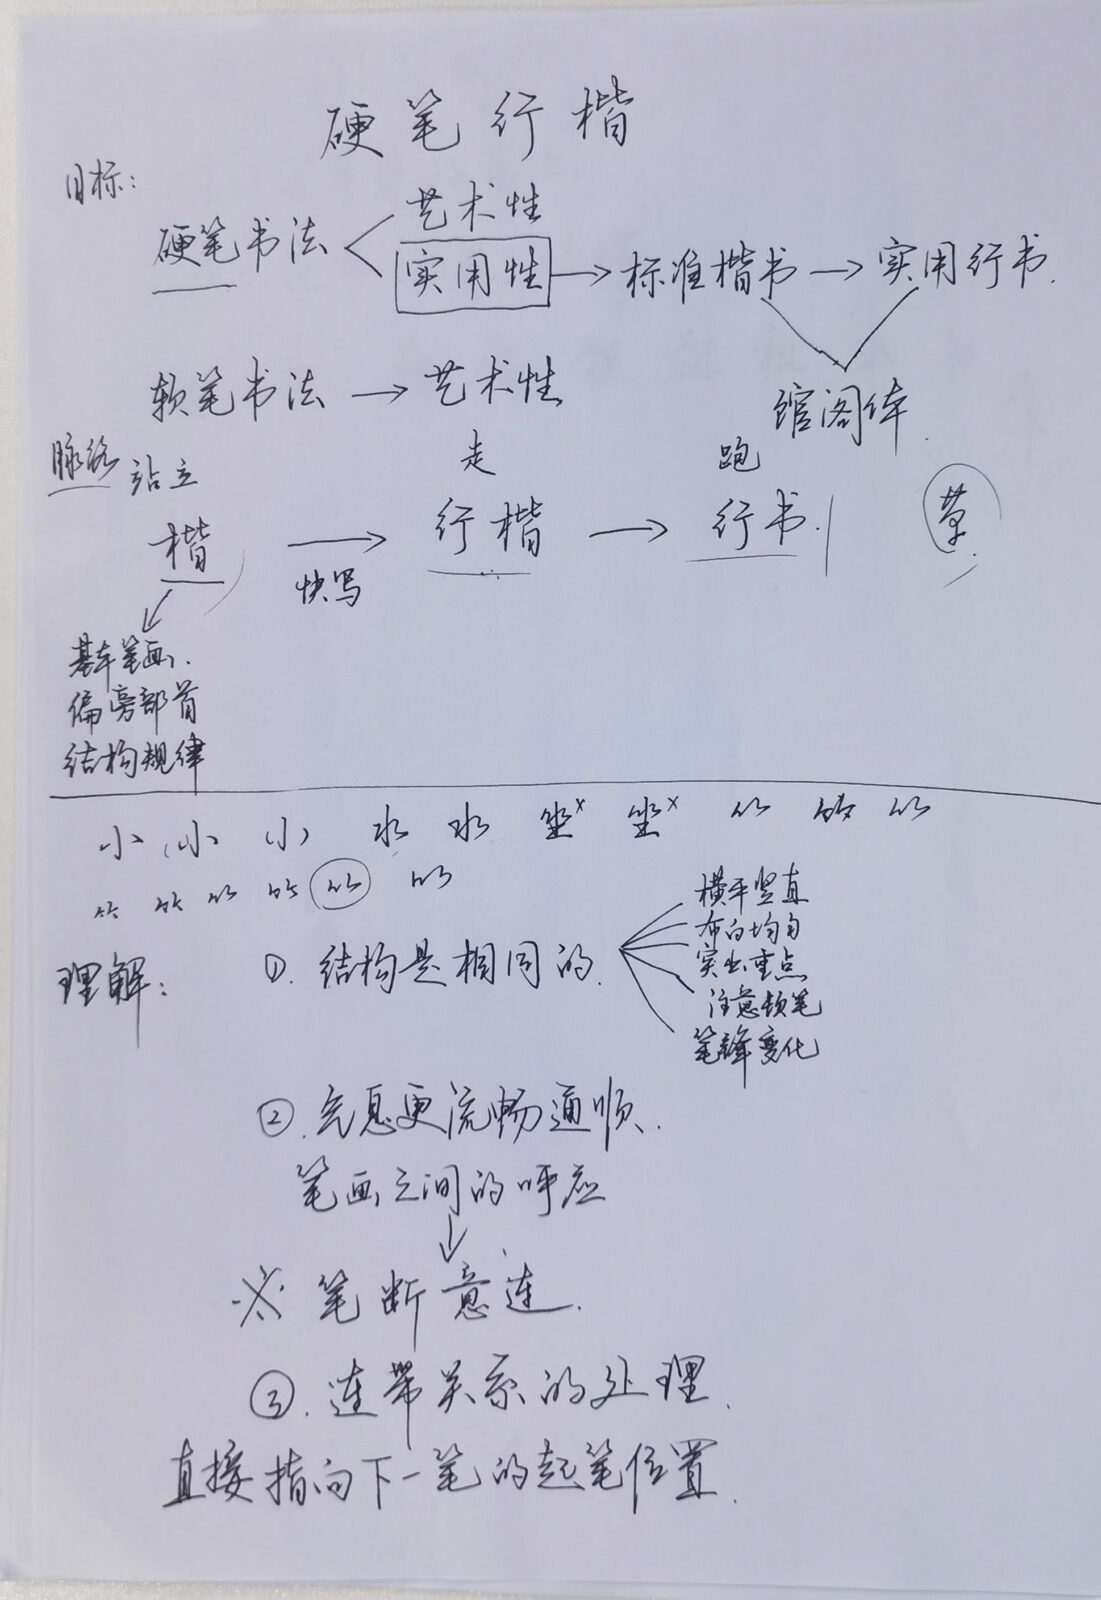 硬笔行楷
目标:
艺术性
硬笔书法
实用性 → 标准楷书 → 实用行书.
软笔书法 → 艺术性
馆阁体.
脉络 站立 走 跑
楷 → 行楷 → 行书. 草.
快写
基本笔画.
偏旁部首
结构规律
小 小 小 水 水 坐× 坐× ⺮ ⺮ ⺮
⺮ ⺮ ⺮ ⺮ ⺮ ⺮
横平竖直
布白均匀
理解: ①. 结构是相同的.
突出重点
注意顿笔
笔锋变化
②. 气息更流畅通顺.
笔画之间的呼应
↓
※ 笔断意连.
③. 连带关系的处理.
直接指向下一笔的起笔位置.